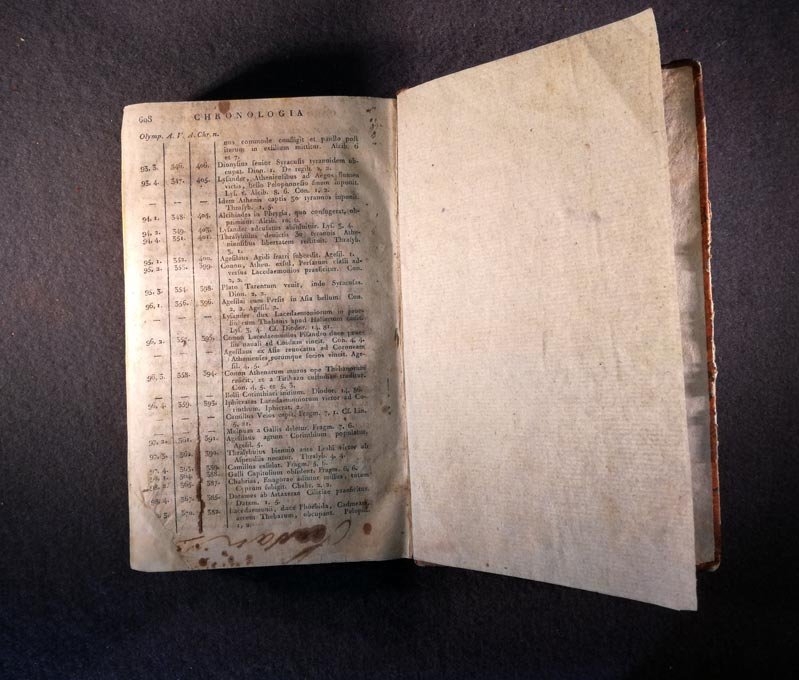 608 CHRONOLOGIA
Olymp. A. V. A. Chr. n.
quo commode confugit et paullo post
iterum in exilium mittitur. Alcib. 6
et 7.
93. 3. 346. 406. Dionysius senior Syracusis tyrannidem oc-
cupat. Dion. 1. De regib. 2, 2.
93. 4. 347. 405. Lysander, Atheniensibus ad Aegos flumen
victis, bello Peloponnesio finem imponit.
Lys. 1. Alcib. 8. 6. Con. 1, 2.
— — — Idem Athenis captis 30 tyrannos imponit.
Thrasyb. 1, 5.
94. 1. 348. 404. Alcibiades in Phrygia, quo confugerat, op-
primitur. Alcib. 10, 6.
94. 2. 349. 403. Lysander adcusatus absolvitur. Lys. 3, 4.
94. 4. 351. 401. Thrasybulus devictis 30 tyrannis Athe-
niensibus libertatem restituit. Thrasyb.
3, 1.
95. 1. 352. 400. Agesilaus Agidi fratri succedit. Agesil. 1.
95. 2. 353. 399. Conon, Athen. exsul, Persarum classi ad-
versus Lacedaemonios praeficitur. Con.
2, 2.
95. 3. 354. 398. Plato Tarentum venit, inde Syracusas.
Dion. 2, 2.
96. 1. 356. 396. Agesilai cum Persis in Asia bellum. Con.
2, 2. Agesil. 2.
— — — Lysander dux Lacedaemoniorum in
Thebanis apud Haliartum
Lys. 3, 4. Cf. Diodor. 14, 81.
96. 2. 357. 395. Conon Lacedaemonios Pisandro duce
navali ad Cnidum vincit. Con. 4, 4.
— — — Agesilaus ex Asia revocatus ad Coroneam
Athenienses, eorumque socios vincit. Age-
sil. 4, 5.
96. 3. 358. 394. Conon Athenarum muros ope Thebanorum
reficit, et a Tiribazo custodiae traditur.
Con. 4, 5. et 5, 3.
— — — Belli Corinthiaci initium. Diodor. 14, 86.
96. 4. 359. 393. Iphicrates Lacedaemoniorum victor ad Co-
rinthum. Iphicrat. 2.
— — — Camillus Veios capit, Fragm. 7, 1. Cf. Liv.
5, 21.
— — — Melpum a Gallis deletur. Fragm. 7, 6.
97. 2. 361. 391. Agesilaus agrum Corinthium populatur,
Agesil. 5.
97. 3. 362. 390. Thrasybulus biennio ante Lesbi victor ab
Aspendiis necatur. Thrasyb. 4, 4.
97. 4. 363. 389. Camillus exsulat. Fragm. 5, 1.
364. 388. Galli Capitolium obsident. Fragm. 6, 6.
365. 387. Chabrias, Euagorae adiutor missus, totam
Cyprum subigit. Chabr. 2, 2.
367. 385. Datames ab Artaxerxe Ciliciae praeficitur.
Datam. 1, 5.
370. 382. Lacedaemonii, duce Phoebida, Cadmeam,
arcem Thebarum, occupant. Pelopid.
1, 2.